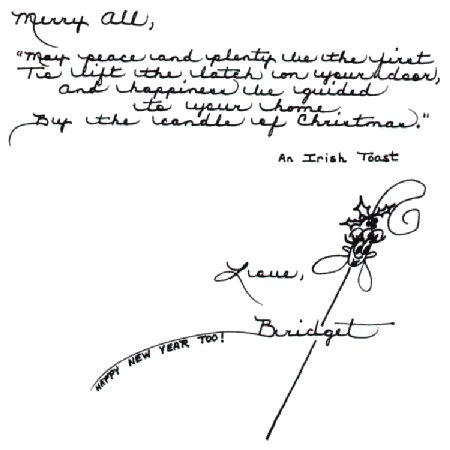 Merry All,
"May peace and plenty be the first
To lift the latch on your door,
and happiness be guided
to your home
By the candle of Christmas."
An Irish Toast
Love,
Bridget
HAPPY NEW YEAR TOO!